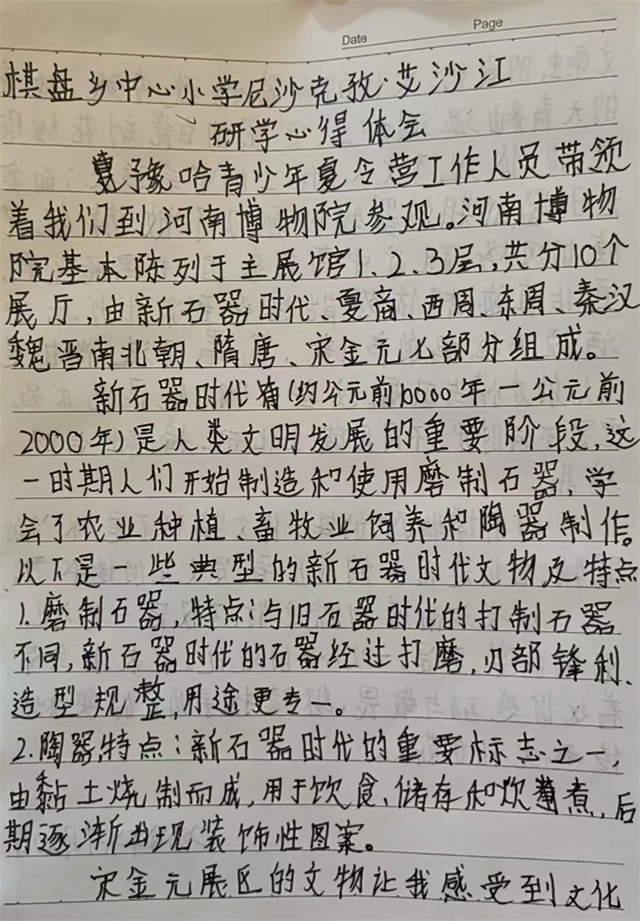 Date Page
棋盘乡中心小学尼沙克孜·艾沙江
研学心得体会
夏豫哈青少年夏令营工作人员带领
着我们到河南博物院参观。河南博物
院基本陈列于主展馆1、2、3层,共分10个
展厅,由新石器时代、夏商、西周、东周、秦汉
魏晋南北朝、隋唐、宋金元七部分组成。
新石器时代(约公元前10000年一公元前
2000年)是人类文明发展的重要阶段,这
一时期人们开始制造和使用磨制石器,学
会了农业种植、畜牧业饲养和陶器制作。
以下是一些典型的新石器时代文物及特点
1.磨制石器,特点:与旧石器时代的打制石器
不同,新石器时代的石器经过打磨,刃部锋利、
造型规整,用途更专一。
2.陶器,特点:新石器时代的重要标志之一,
由黏土烧制而成,用于饮食、储存和炊煮,后
期逐渐出现装饰性图案。
宋金元展区的文物让我感受到文化